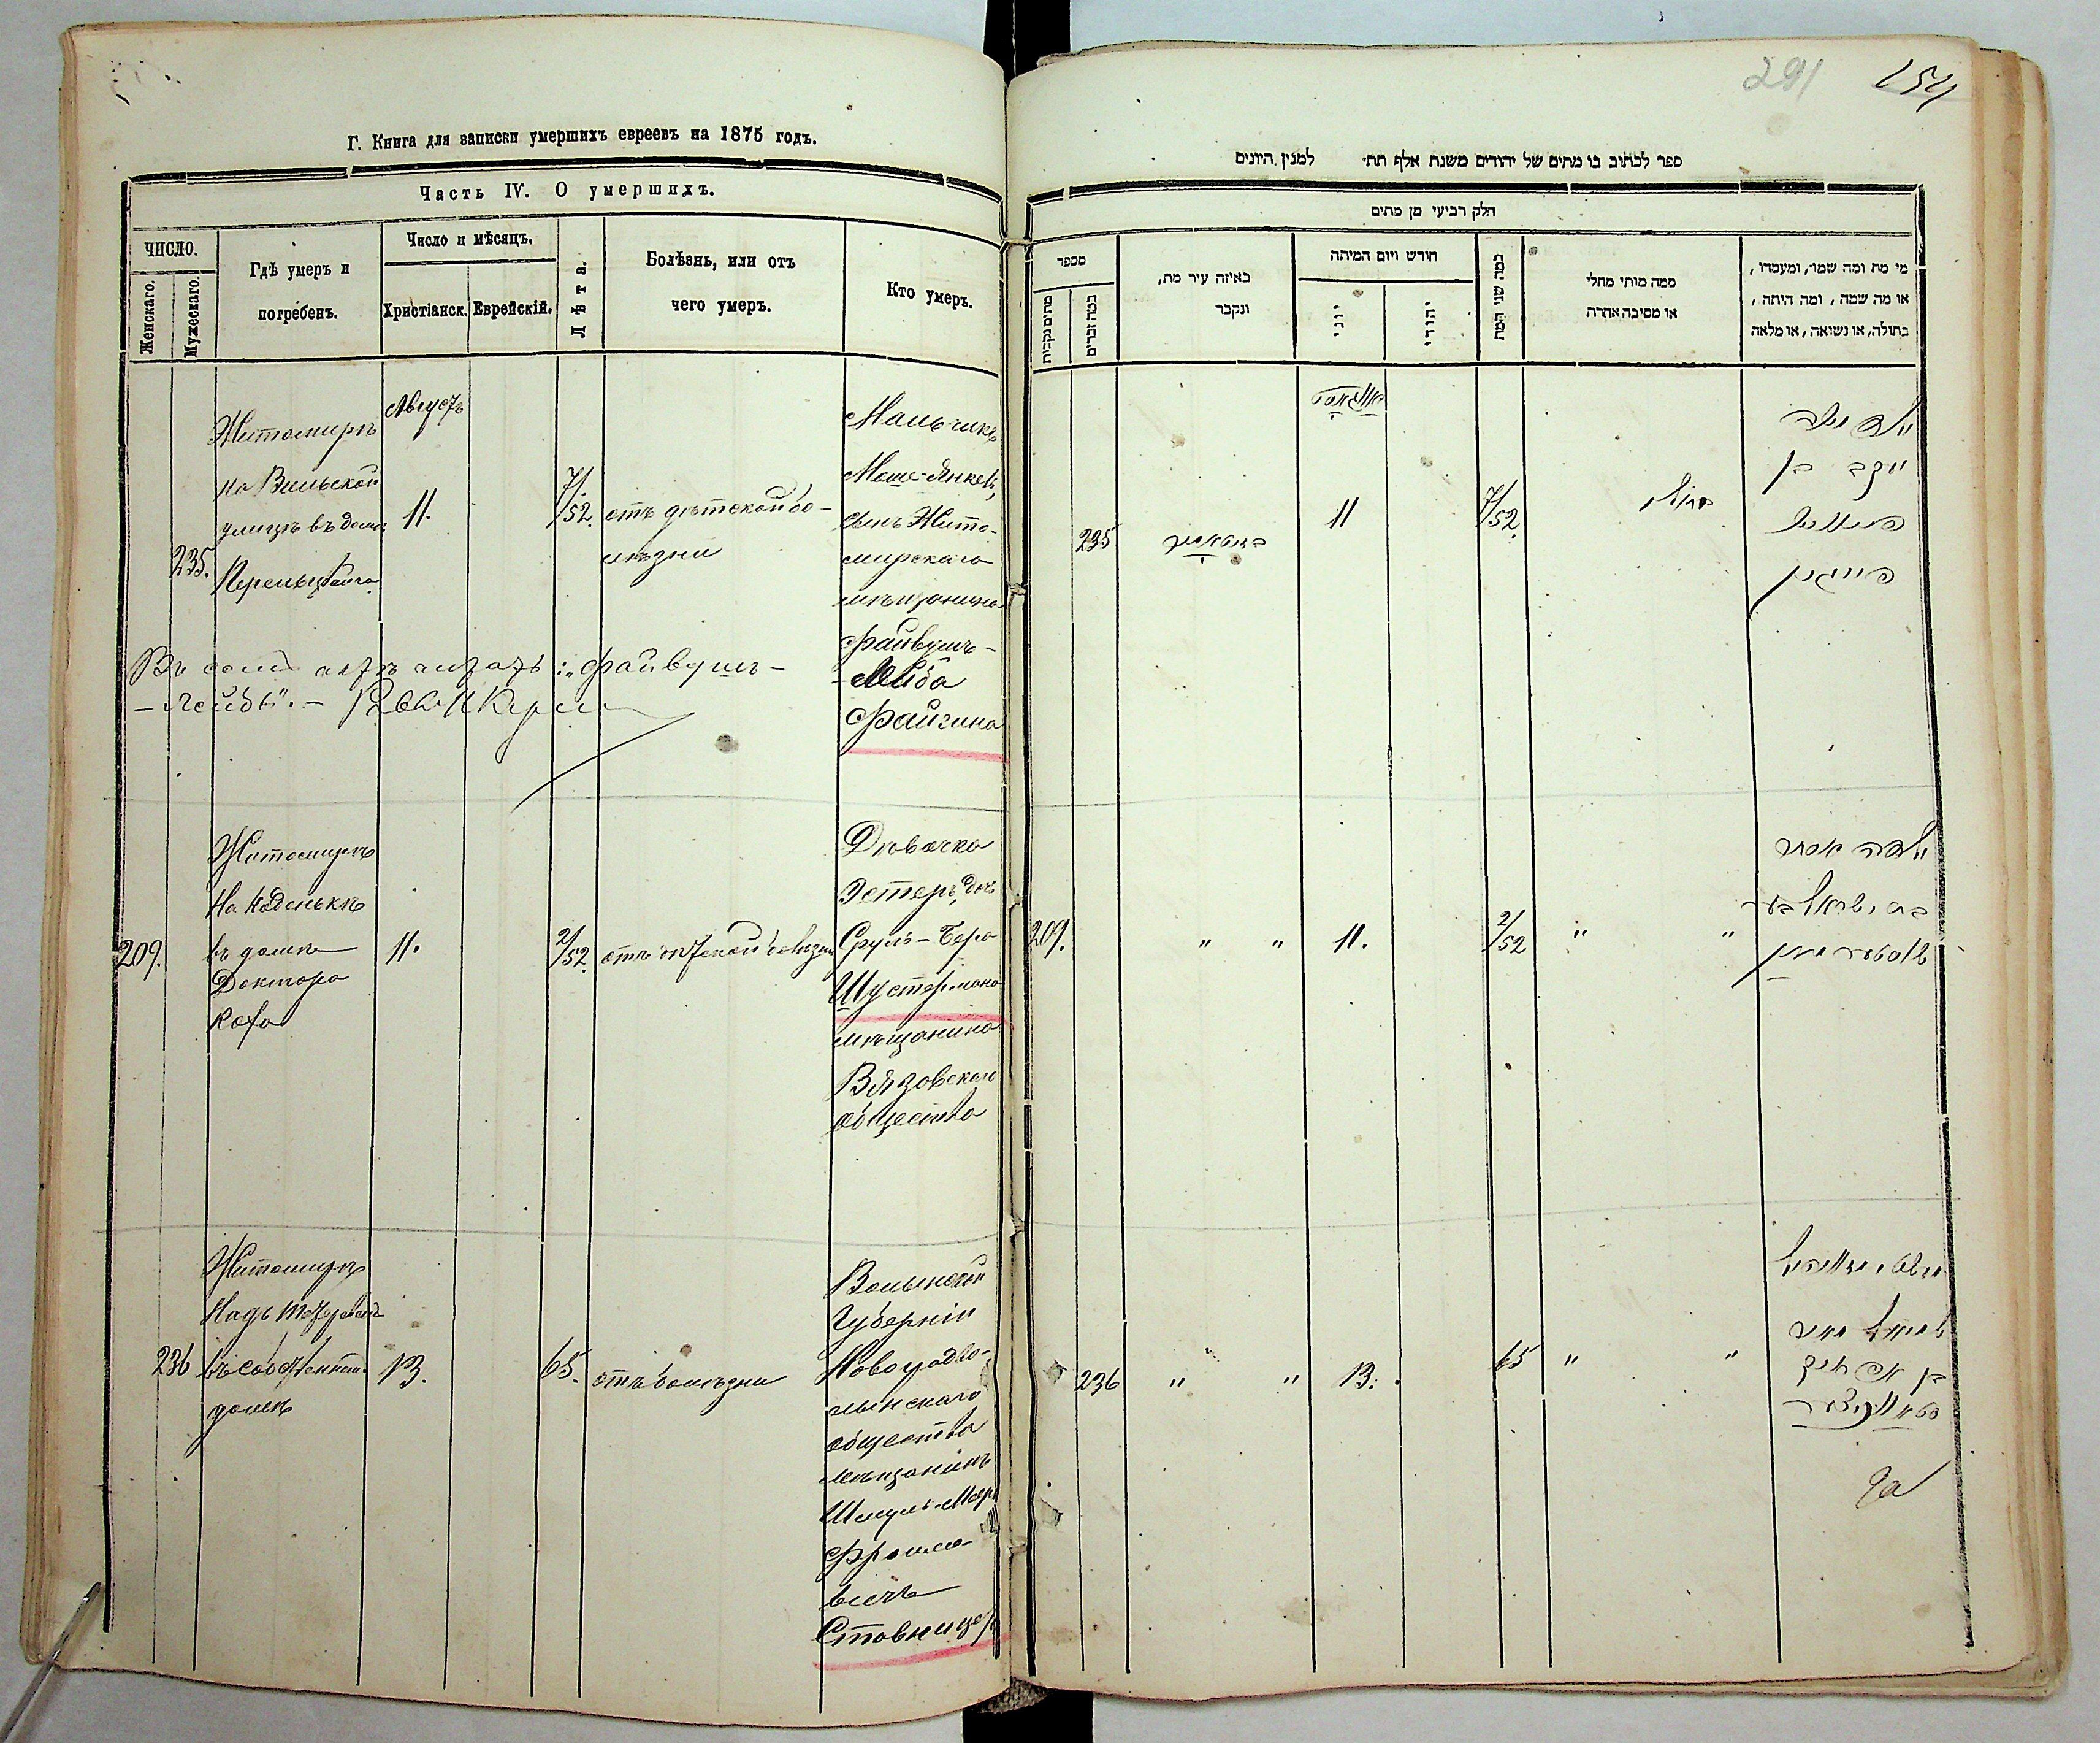 Г. Книга для записки умершихъ евреевъ на 1875 годъ.
Часть IV. О умершихъ.
ЧИСЛО.
Женскаго.
Мужескаго.
Гдѣ умеръ и
погребенъ.
Число и мѣсяцъ.
Христіанск.
Еврейскій.
Лѣта.
Болѣзнь, или отъ
чего умеръ.
Кто умеръ.
235.
Житомиръ
на Вильской
улицѣ въ домѣ
Августъ
11.
7/52.
отъ дѣтской бо-
лѣзни
Мальчикъ
Моше-Янкель,
сынъ Жито-
мирскаго
мѣщанина
Файвушъ-
-Лейба
Файгина
Въ семъ актѣ : „Файвушъ-
-Лейбы". -
209.
Житомиръ
На Каденькѣ
въ домѣ
Доктора
11.
2/52.
отъ дѣтской болѣзни
Дѣвочка
Эстеръ, дочь
Сруль-Бера
Шустермана
мѣщанина
Вязовскаго
общества
236
Житомиръ
Надъ
въ собственномъ
домѣ
13.
65.
отъ болѣзни
Волынской
Губерніи
Новоградво-
лынскаго
общества
мѣщанинъ
Шмуль-Меер
Фроимо-
вичъ
Ставницер
291 154
ספר לכתוב בו מתים של יהודים משנת אלף תת׳ למנין היונים
חלק רביעי מן מתים
מספר
מתים נקבות
כמה זכרים
באיזה עיר מת,
ונקבר
חודש ויום המיתה
יוני
יהודי
כמה שני המת
ממה מותו מחלי
או מסיבה אחרת
מי מת ומה שמו, ומעמדו,
או מה שמה, ומה היתה,
בתולה, או נשואה, או מלאה
235
11
7/52.
יעקב בן
209.
" "
11.
2/52
" "
ילדה אסתר
בת ישראל בער
שוסטערמאן
236
" "
13.
65
" "
שמואל מאיר
בן